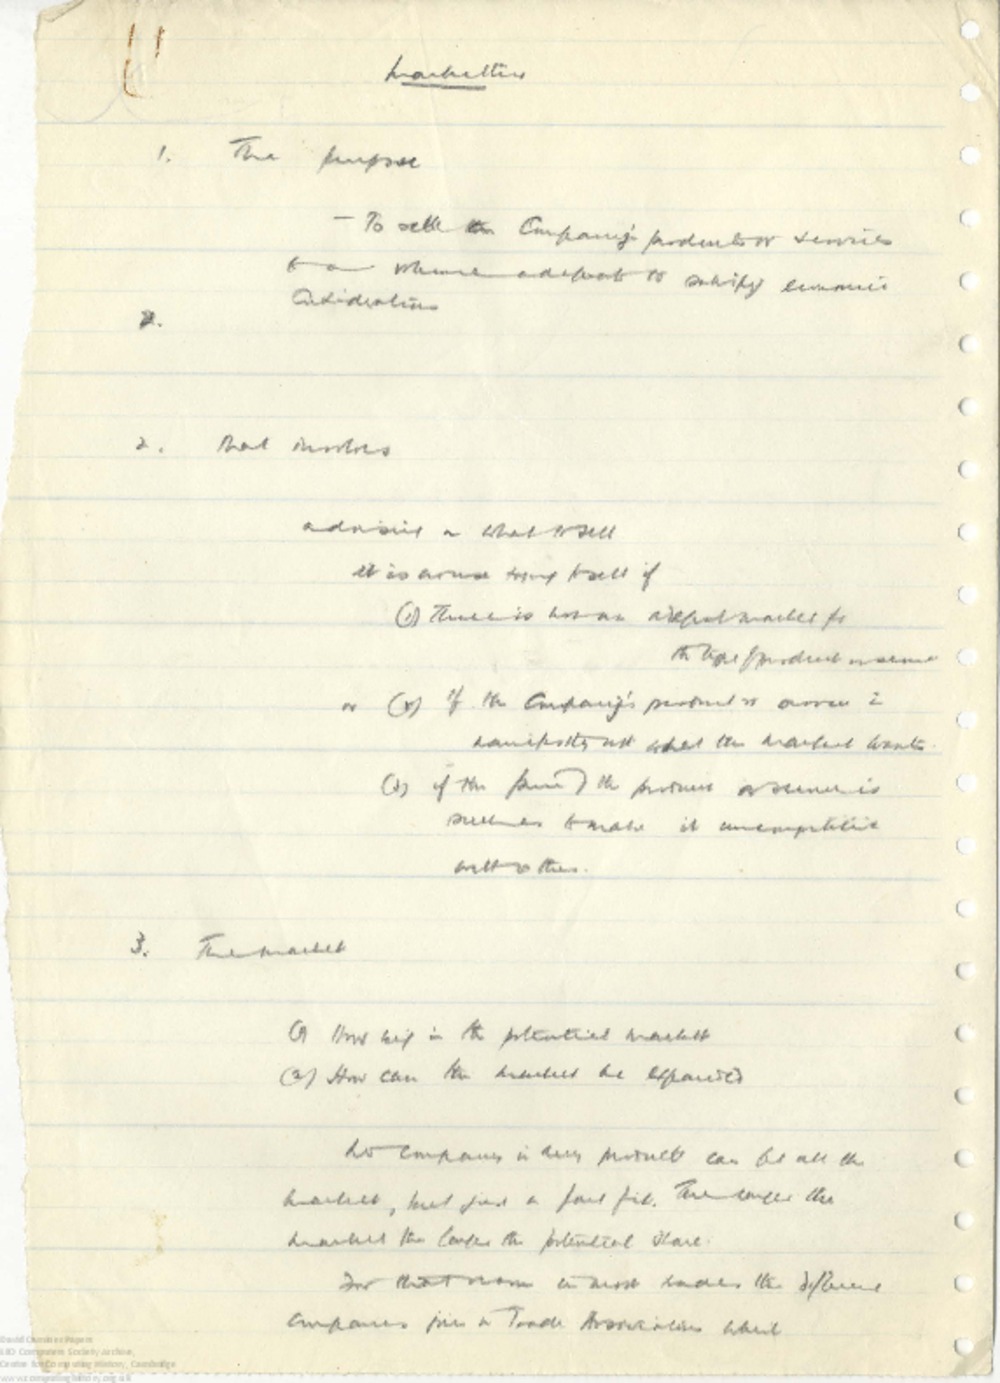 Marketing
1. The purpose
- To sell the Company's products or services
to a volume adequate to satisfy economic
considerations
2.
2. That involves
advising on what to sell
It is no use trying to sell if
(1) There is not an adequate market for
the type of product or service
or (2) if the Company's product or service is
manifestly not what the market wants
(3) if the price of the product or service is
such as to make it uncompetitive
with others.
3. The market
(1) How big is the potential market
(2) How can the market be expanded
No company in any product can get all the
market, but just a part of it. The larger the
market the larger the potential share.
For that reason in most trades the different
companies join a Trade Association which
David Caminer Papers
LEO Computers Society Archive,
Centre for Computing History, Cambridge
www.computinghistory.org.uk